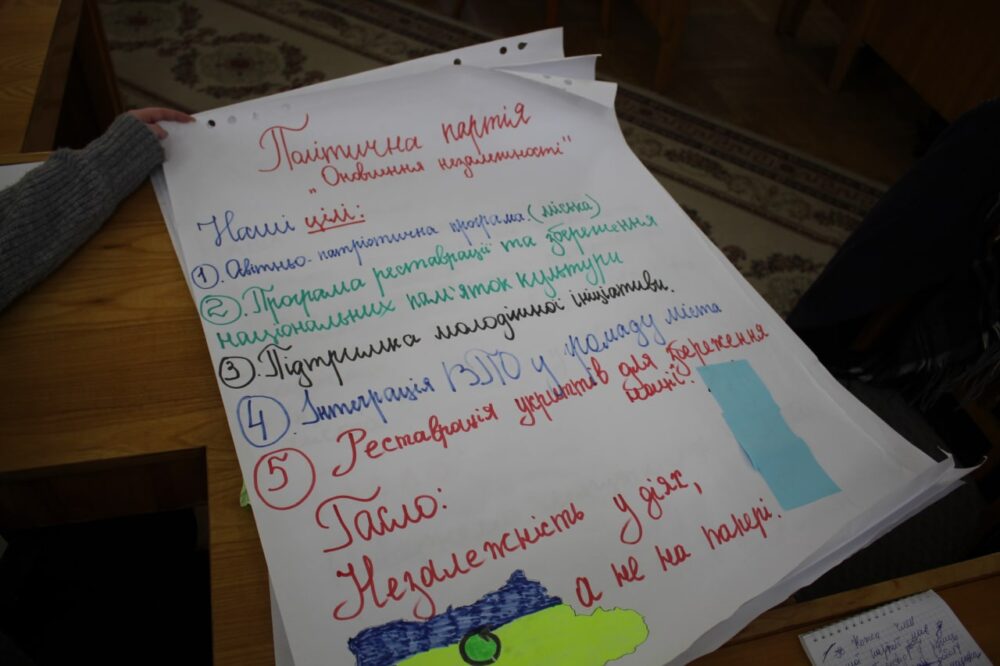 Політична партія
"Оновлення незалежності"
Наші цілі:
1. Освітньо-патріотична програма. (міська)
2. Програма реставрації та збереження
національних пам'яток культури
3. Підтримка молодіжної ініціативи.
4. Інтеграція ВПО у громаду міста
5 Реставрація укриттів для збереження
Гасло:
Незалежність у діях,
а не на папері.